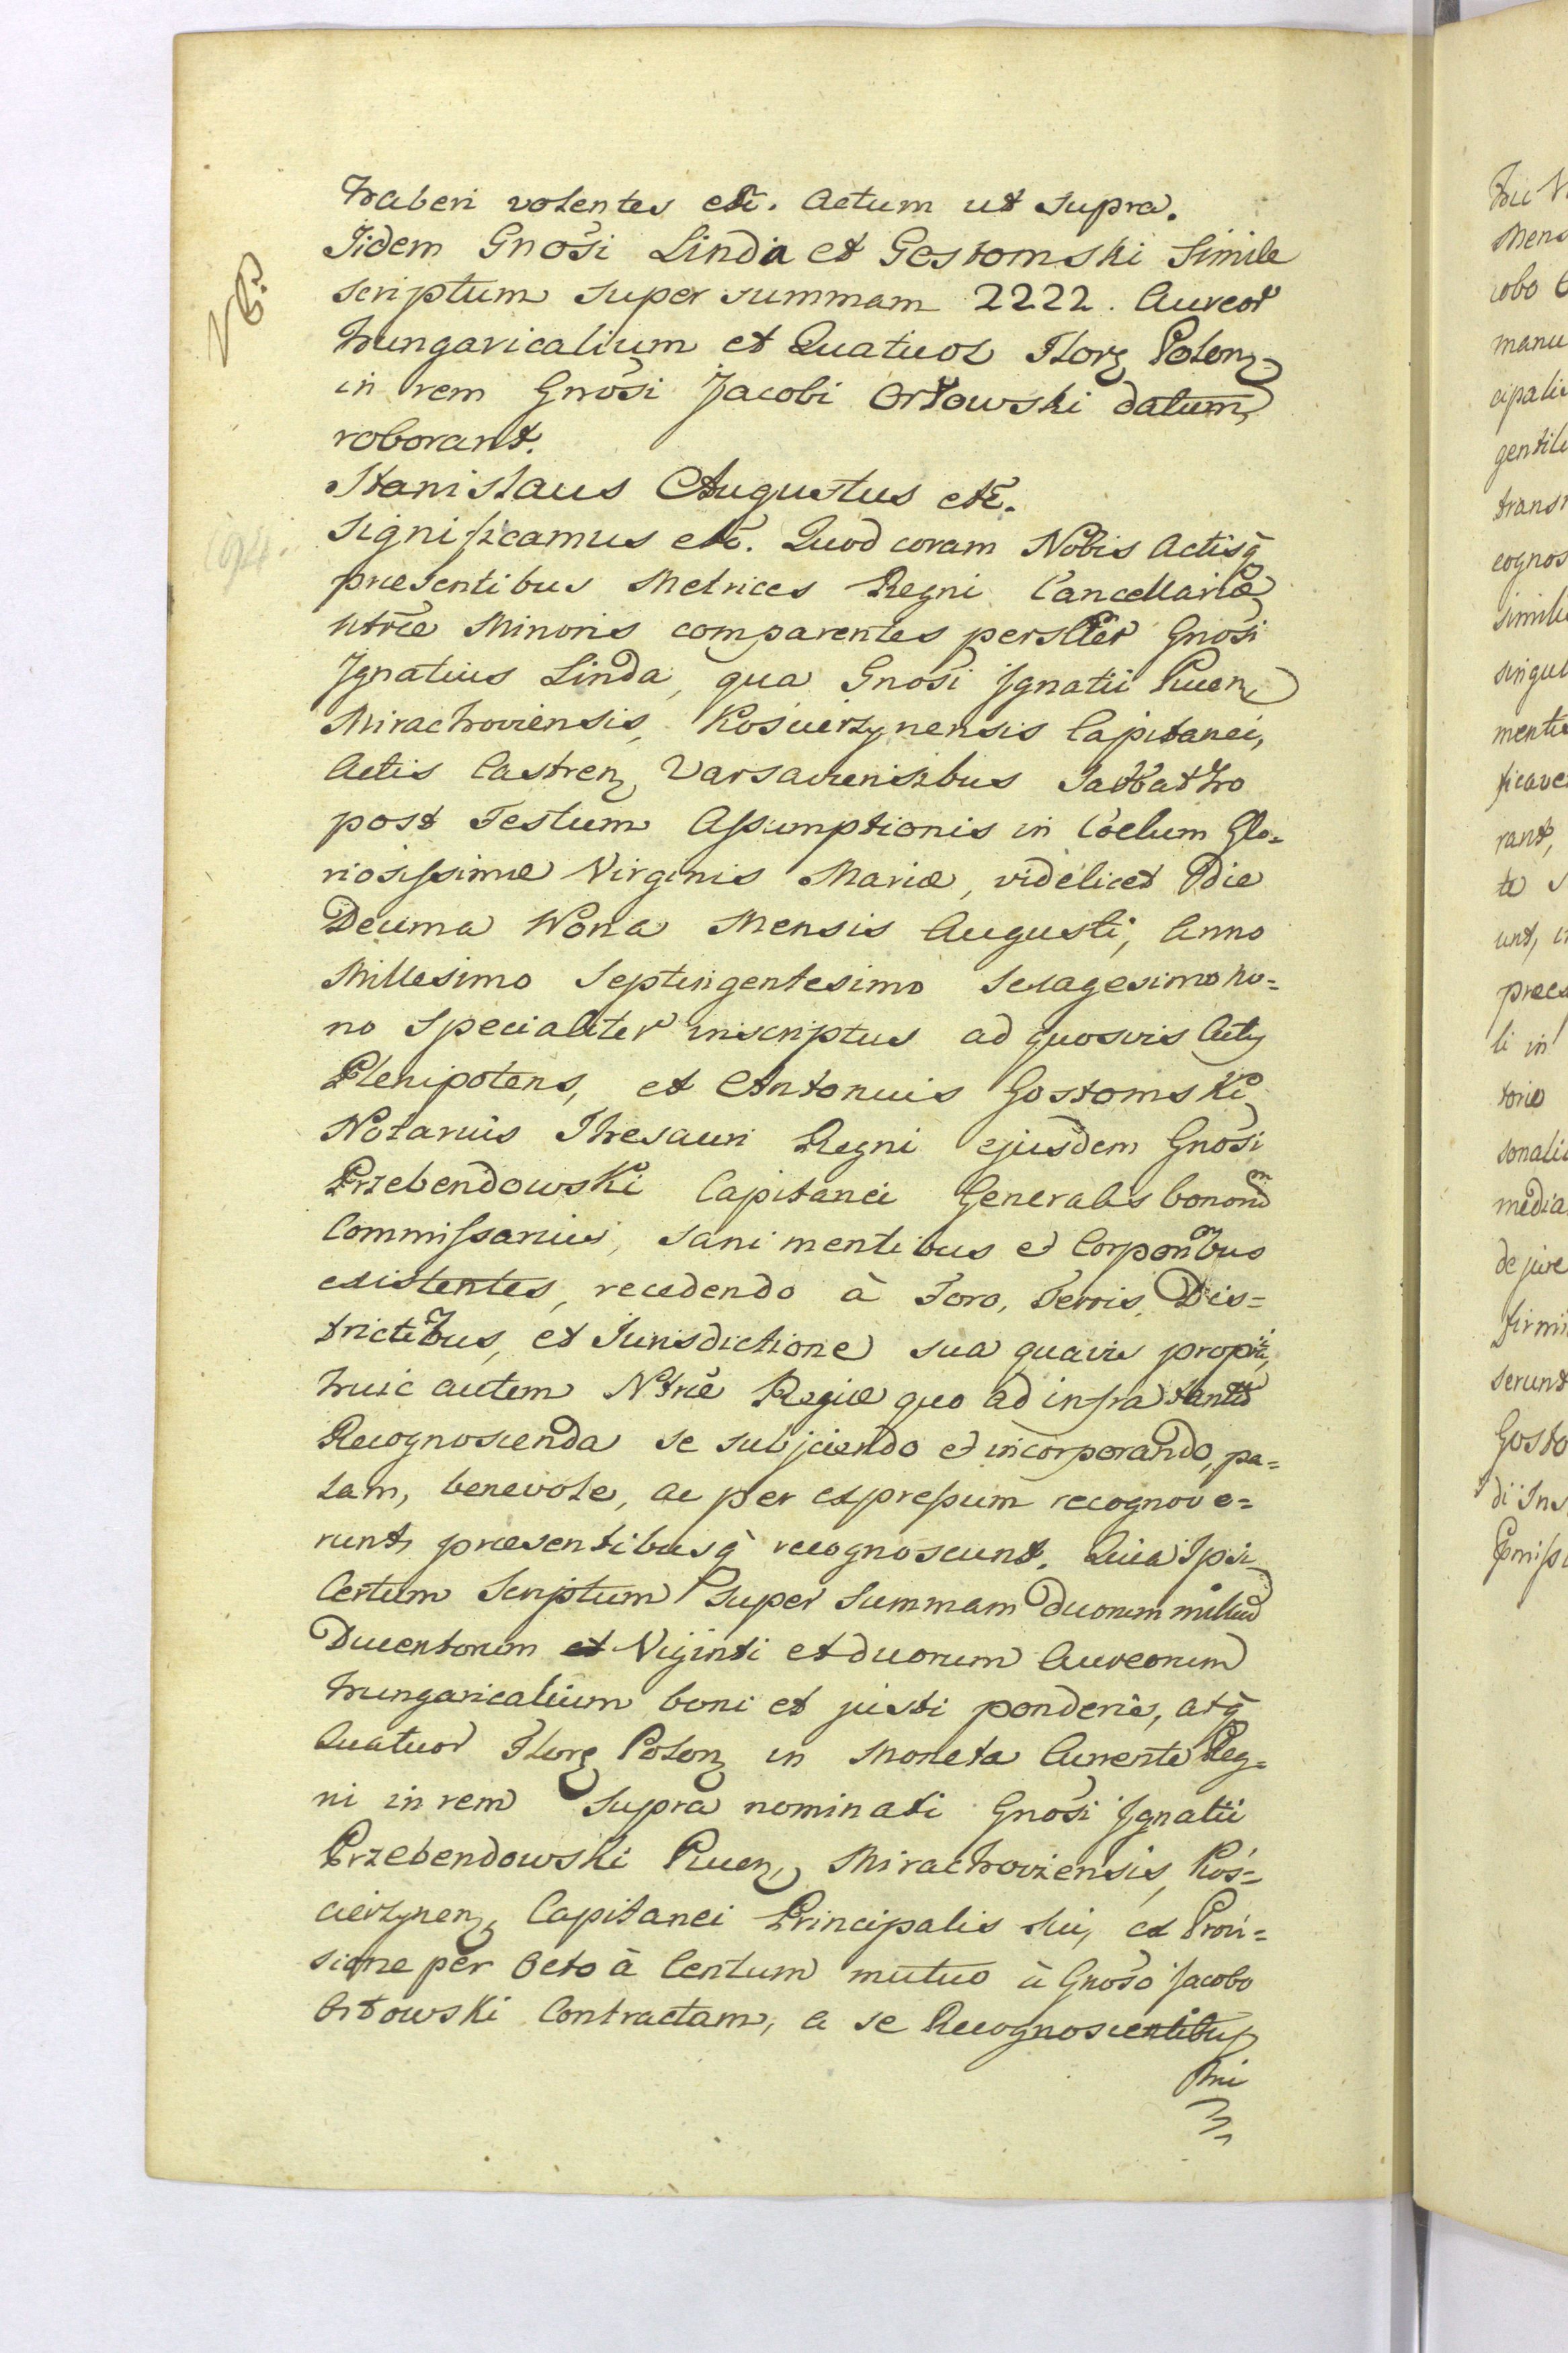 haberi volentes etc. Actum ut supra.
NB.
Iidem Gnosi Linda et Gostomski Simile
scriptum super summam 2222. Aureor
hungaricalium et Quatuor Flor Polon
in rem Gnosi Jacobi Orłowski datum
roborant.
Stanislaus Augustus etc.
194.
Significamus etc. Quod coram Nobis Actisq
praesentibus Metrices Regni Cancellariae
Ntrae Minoris comparentes persliter Gnosi
Ignatius Linda, qua Gnosi Ignatii Pucen
Mirachoviensis, Kościerzynensis Capitanei,
Actis Castren Varsaviensibus Sabbatho
post Festum Assumptionis in Coelum Glo=
riosissimae Virginis Mariae, videlicet Die
Decima Nona Mensis Augusti, Anno
Millesimo Septingentesimo Sexagesimo no=
no Specialiter inscriptus ad quosvis Actus
Plenipotens, et Antonius Gostomski
Notarius Thesauri Regni ejusdem Gnosi
Przebendowski Capitanei Generalis bonorum
Commissarius, sani mentibus et Corporibus
existentes, recedendo à Foro, Terris, Dis=
trictibus, et Jurisdictione sua quavis propria,
huic autem Ntrae Regiae quo ad infra
Recognoscenda se subjciendo et incorporando, pa=
lam, benevole, ac per expressum recognove=
runt, praesentibusq recognoscunt. Quia Ipsi
Certum Scriptum super Summam Duorum millium
Ducentorum et Viginti et duorum Aureorum
hungaricalium boni et justi ponderis, atq
Quatuor Flor Polon in Moneta Currente Reg=
ni in rem supra nominati Gnosi Ignatii
Przebendowski Pucen, Mirachoviensis, Koś=
cierzynen Capitanei Principalis sui, cum Provi=
sione per Octo à Centum mutuo à Gnoso Jacobo
Orłowski Contractam, a se Recognoscentibus